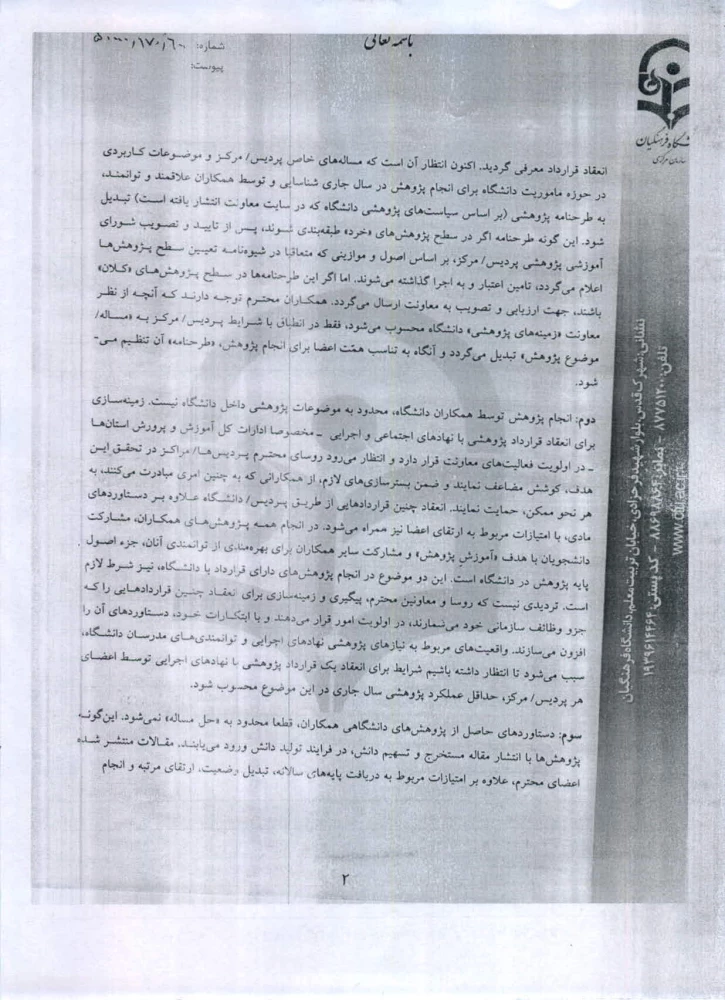 باسمه تعالی
شماره: ۵۰۰۰۰/۱۷۰/۶۰
پیوست:
دانشگاه فرهنگیان
سازمان مرکزی
انعقاد قرارداد معرفی گردید. اکنون انتظار آن است که مساله‌های خاص پردیس/ مرکز و موضوعات کاربردی
در حوزه ماموریت دانشگاه برای انجام پژوهش در سال جاری شناسایی و توسط همکاران علاقمند و توانمند،
به طرحنامه پژوهشی (بر اساس سیاست‌های پژوهشی دانشگاه که در سایت معاونت انتشار یافته است) تبدیل
شود. این گونه طرحنامه اگر در سطح پژوهش‌های «خرد» طبقه‌بندی شوند، پس از تایید و تصویب شورای
آموزشی پژوهشی پردیس/ مرکز، بر اساس اصول و موازینی که متعاقبا در شیوه‌نامه تعیین سطح پژوهش‌ها
اعلام می‌گردد، تامین اعتبار و به اجرا گذاشته می‌شوند. اما اگر این طرحنامه‌ها در سطح پژوهش‌های «کلان»
باشند، جهت ارزیابی و تصویب به معاونت ارسال می‌گردد. همکاران محترم توجه دارند که آنچه از نظر
معاونت «زمینه‌های پژوهشی» دانشگاه محسوب می‌شود، فقط در انطباق با شرایط پردیس/ مرکز به «مساله/
موضوع پژوهش» تبدیل می‌گردد و آنگاه به تناسب همّت اعضا برای انجام پژوهش، «طرحنامه» آن تنظیم می-
شود.
دوم: انجام پژوهش توسط همکاران دانشگاه، محدود به موضوعات پژوهشی داخل دانشگاه نیست. زمینه‌سازی
برای انعقاد قرارداد پژوهشی با نهادهای اجتماعی و اجرایی - مخصوصا ادارات کل آموزش و پرورش استان‌ها
- در اولویت فعالیت‌های معاونت قرار دارد و انتظار می‌رود روسای محترم پردیس‌ها/ مراکز در تحقق این
هدف، کوشش مضاعف نمایند و ضمن بسترسازی‌های لازم، از همکارانی که به چنین امری مبادرت می‌کنند، به
هر نحو ممکن، حمایت نمایند. انعقاد چنین قراردادهایی از طریق پردیس/ دانشگاه علاوه بر دستاوردهای
مادی، با امتیازات مربوط به ارتقای اعضا نیز همراه می‌شود. در انجام همه پژوهش‌های همکاران، مشارکت
دانشجویان با هدف «آموزش پژوهش» و مشارکت سایر همکاران برای بهره‌مندی از توانمندی آنان، جزء اصول
پایه پژوهش در دانشگاه است. این دو موضوع در انجام پژوهش‌های دارای قرارداد با دانشگاه، نیز شرط لازم
است. تردیدی نیست که روسا و معاونین محترم، پیگیری و زمینه‌سازی برای انعقاد چنین قراردادهایی را که
جزو وظائف سازمانی خود می‌شمارند، در اولویت امور قرار می‌دهند و با ابتکارات خود، دستاوردهای آن را
افزون می‌سازند. واقعیت‌های مربوط به نیازهای پژوهشی نهادهای اجرایی و توانمندی‌های مدرسان دانشگاه،
سبب می‌شود تا انتظار داشته باشیم شرایط برای انعقاد یک قرارداد پژوهشی با نهادهای اجرایی توسط اعضای
هر پردیس/ مرکز، حداقل عملکرد پژوهشی سال جاری در این موضوع محسوب شود.
سوم: دستاوردهای حاصل از پژوهش‌های دانشگاهی همکاران، قطعا محدود به «حل مساله» نمی‌شود. این‌گونه
پژوهش‌ها با انتشار مقاله مستخرج و تسهیم دانش، در فرایند تولید دانش ورود می‌یابند. مقالات منتشر شده
اعضای محترم، علاوه بر امتیازات مربوط به دریافت پایه‌های سالانه، تبدیل وضعیت، ارتقای مرتبه و انجام
۲
نشانی: شهرک قدس، بلوار شهید فرحزادی، خیابان تربیت معلم، دانشگاه فرهنگیان
تلفن: ۸۷۷۵۱۲۰۰ - نمابر: - کدپستی: ۱۹۳۹۶۱۴۴۶۴